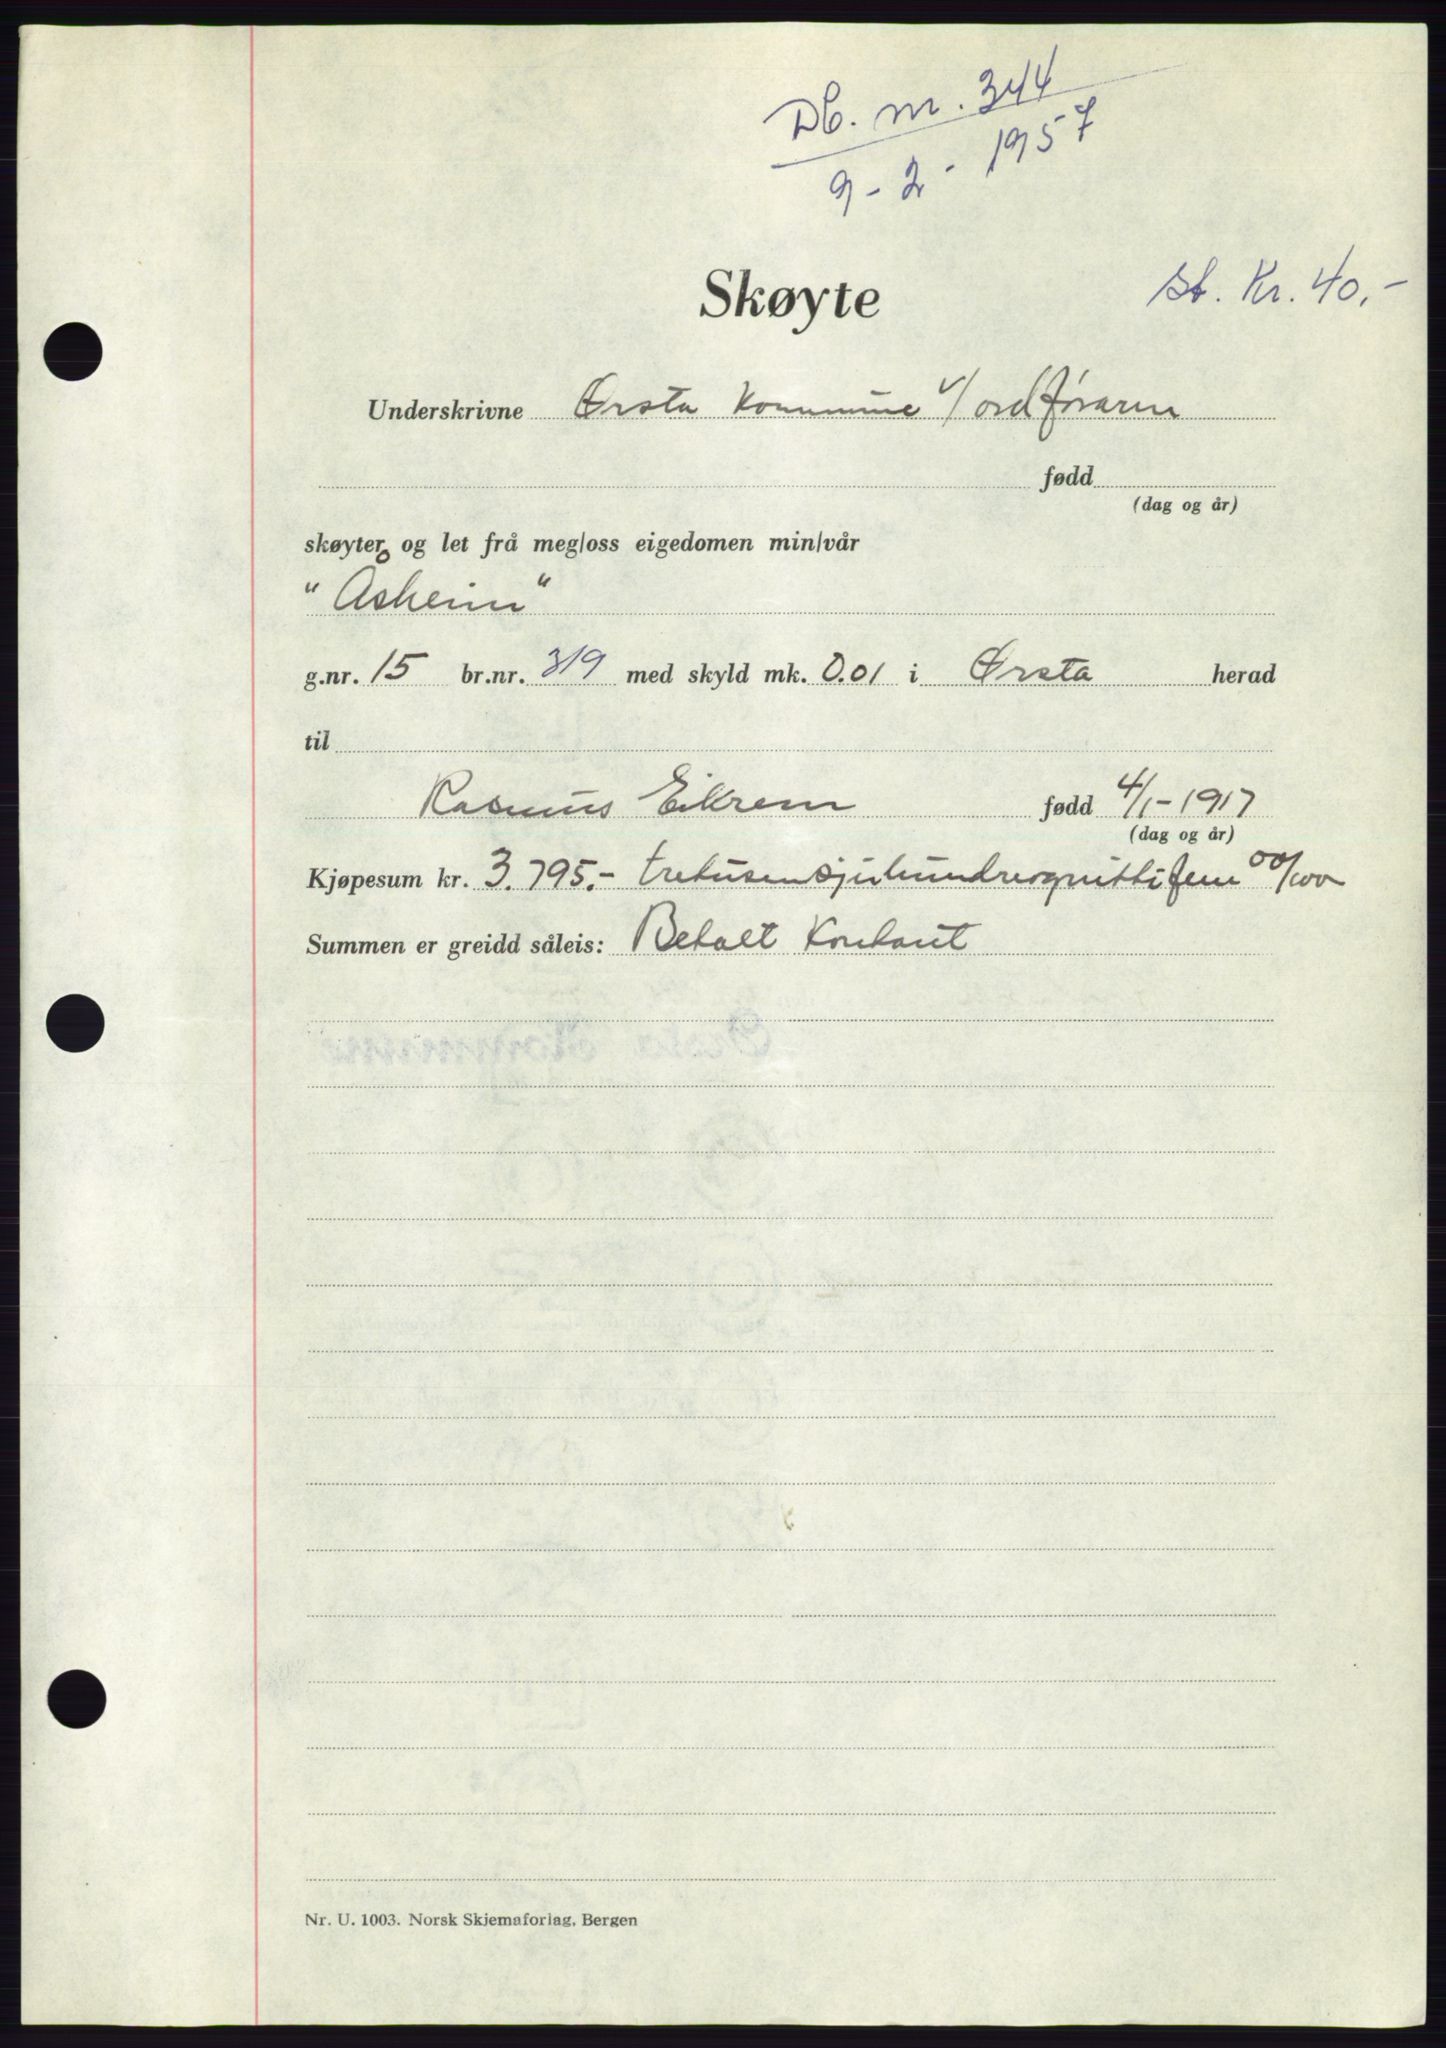 Db. nr. 344
9-2-1957
Skøyte
st. Kr. 40,-
Underskrivne Ørsta Kommune v/ordføraren
fødd
(dag og år)
skøyter og let frå meg/oss eigedomen min/vår
"Asheim"
g.nr. 15 br.nr. 319 med skyld mk. 0.01 i Ørsta herad
til
Rasmus Eikrem fødd 4/1-1917
(dag og år)
Kjøpesum kr. 3.795.- tretusensjuhundreognittifem 00/100
Summen er greidd såleis: Betalt Kontant
Nr. U. 1003. Norsk Skjemaforlag, Bergen